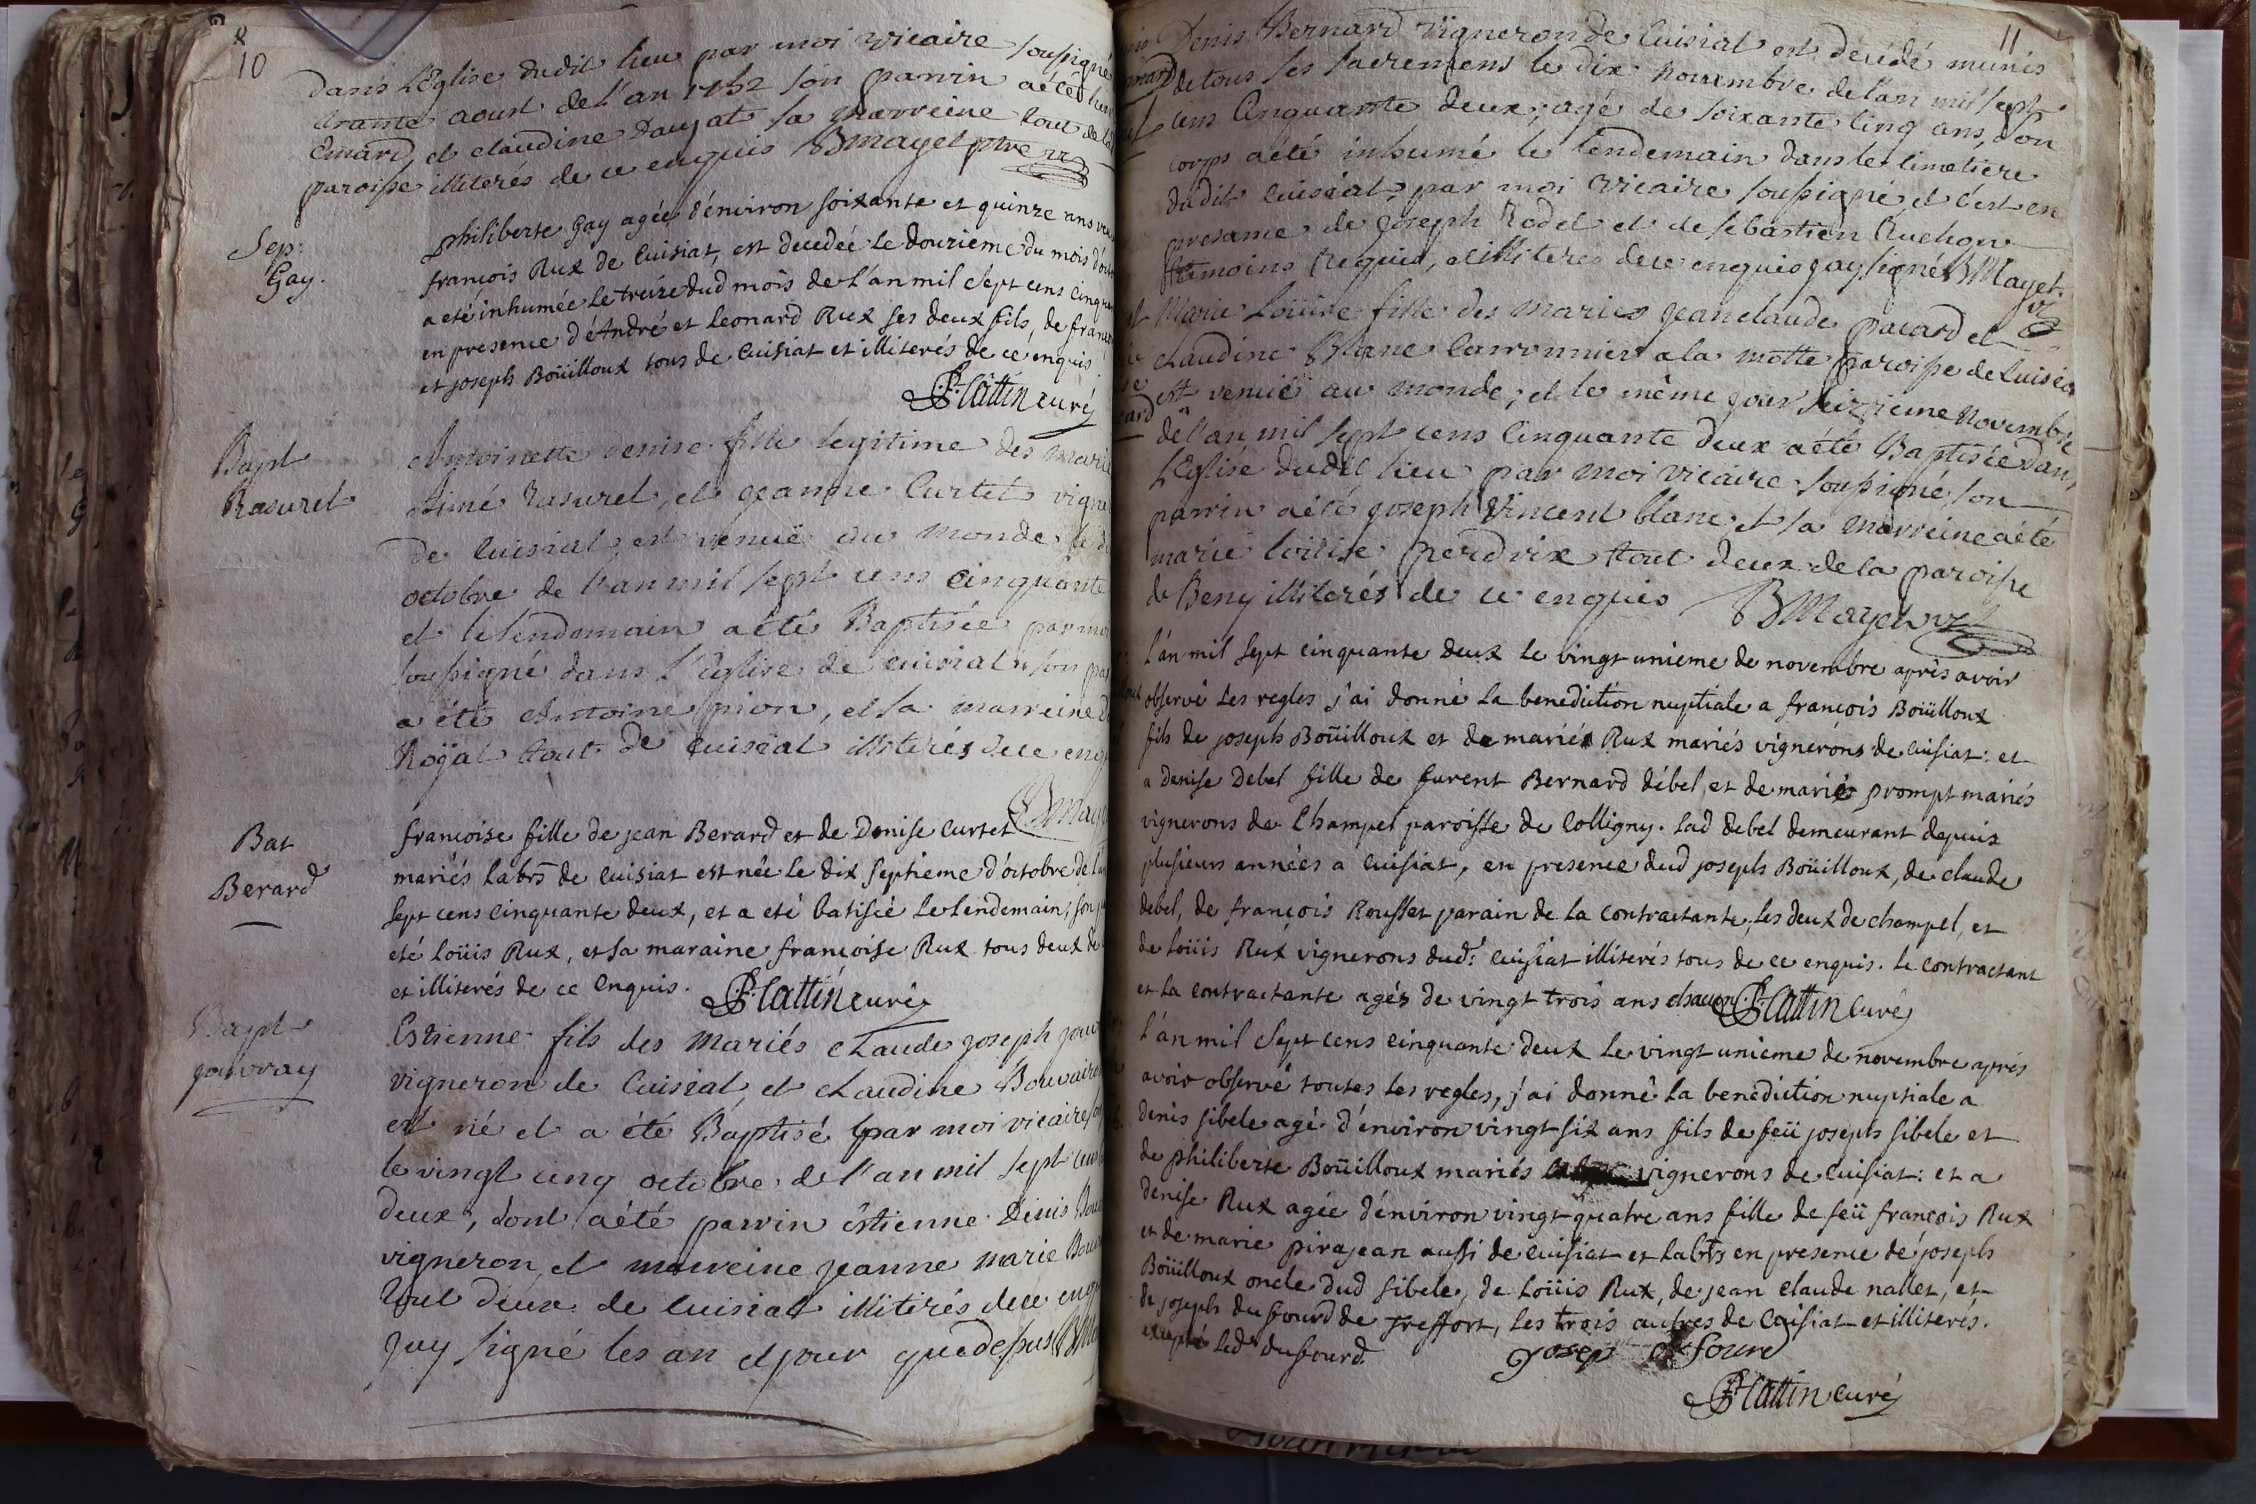 10
dans L'Eglise dudit lieu par moi vicaire soussigné
trante aoust de l'an 1752 son parrin a été
Emard, et claudine Daujat sa marreine tout de la
paroisse illiterés de ce enquis BMayet ptre
Sep:
Gay.
philiberte Gay agée d'énviron soixante et quinze ans
francois Rux de Cuisiat, est decedée Le douzieme du mois
a eté inhumée Le treize dud mois de L'an mil Sept cens
en presence d'André et Leonard Rux ses deux fils, de
et joseph Boüilloux tous de Cuisiat et illiterés de ce enquis
Cattin curé
Bapt
Rasurel
Antoinette denise fille legitime des
Aimé rasurel, et jeanne Curtet
de Cuisiat, est venuë au monde le
octobre de l'an mil sept cens cinquante
et le lendemain a été Baptisée par
soussigné dans L'Eglise de cuisiat, son
a été Antoine pion, et sa marreine
Roÿal tout de cuiseat illiterés de ce
Bat
Berard
francoise fille de jean Berard et de Denise Curtet
mariés Labrs de Cuisiat est née Le dix septième d'octobre de
sept cens cinquante deux, et a eté batisée Le Lendemain; son
eté Loüis Rux, et sa maraine francoise Rux tous deux de
et illiterés de ce Enquis. Cattin curé
Bapt
jouvray
Estienne fils des Mariés claude joseph
vigneron de Cuisiat, et claudine
est né et a été Baptisé par moi vicaire
le vingt cinq octobre de l'an mil sept cens
deux, dont a été parrin êstienne Denis
vigneron, et marreine jeanne marie
tout deux de Cuisiat illitirés de ce
jay signé les an et jour que dessus
11
Denis Bernard vigneron de Cuisiat est decédé munis
de tous ses sacremens le dix novembre de l'an mil sept
cens Cinquante deux; agé de soixante Cinq ans, son
corps a été inhumé le lendemain dans le Cimetiere
dudit Cuiseat, par moi vicaire soussigné et c'est en
presance de joseph Rodet et de sebastien Ruchon
temoins requis, et illiteres de ce enquis jay signé BMayet
Marie Loüise fille des mariés jean claude pacard et
claudine Blanc à la motte paroisse de Cuiseat
est venuë au monde; et le même jour seizieme Novembre
de l'an mil sept cens Cinquante deux a été Baptisée dans
L'Eglise dudit lieu par moi vicaire soussigné, son
parrin a été joseph Vincent blanc et sa marreine a été
marie loüise perdrix tout deux de la paroisse
de Beny illiterés de ce enquis BMayet
L'an mil sept cinquante deux Le vingt unieme de novembre après avoir
observé Les regles j'ai donné La benediction nuptiale a francois Boüilloux
fils de joseph Boüilloux et de marie Rux mariés vignerons de Cuisiat: et
a Denise Debel fille de furent Bernard débel, et de marie prompt mariés
vignerons de Champel paroisse de Colligny. Lad debel demeurant depuis
plusieurs années a Cuisiat, en presence dud joseph Boüilloux, de claude
debel, de francois Rousset parain de La Contractante, Les deux de champel, et
de Loüis Rux vignerons dud: Cuisiat illiterés tous de ce enquis. Le contractant
et La contractante agés de vingt trois ans chacun Cattin curé
L'an mil Sept cens cinquante deux Le vingt unieme de novembre après
avoir observé toutes Les regles, j'ai donné La benediction nuptiale a
denis sibele agé d'énviron vingt six ans fils de feü joseph sibele et
de philiberte Boüilloux mariés vignerons de Cuisiat: et a
denise Rux agée d'énviron vingt quatre ans fille de feü francois Rux
et de marie pirajean aussi de Cuisiat et Labrs en presence de joseph
Boüilloux oncle dud sibele, de Loüis Rux, de jean claude nallet, et
de joseph dufourd de Treffort, Les trois autres de Cuisiat et illiterés.
excepté Led dufourd.
joseph dufourd
Cattin curé